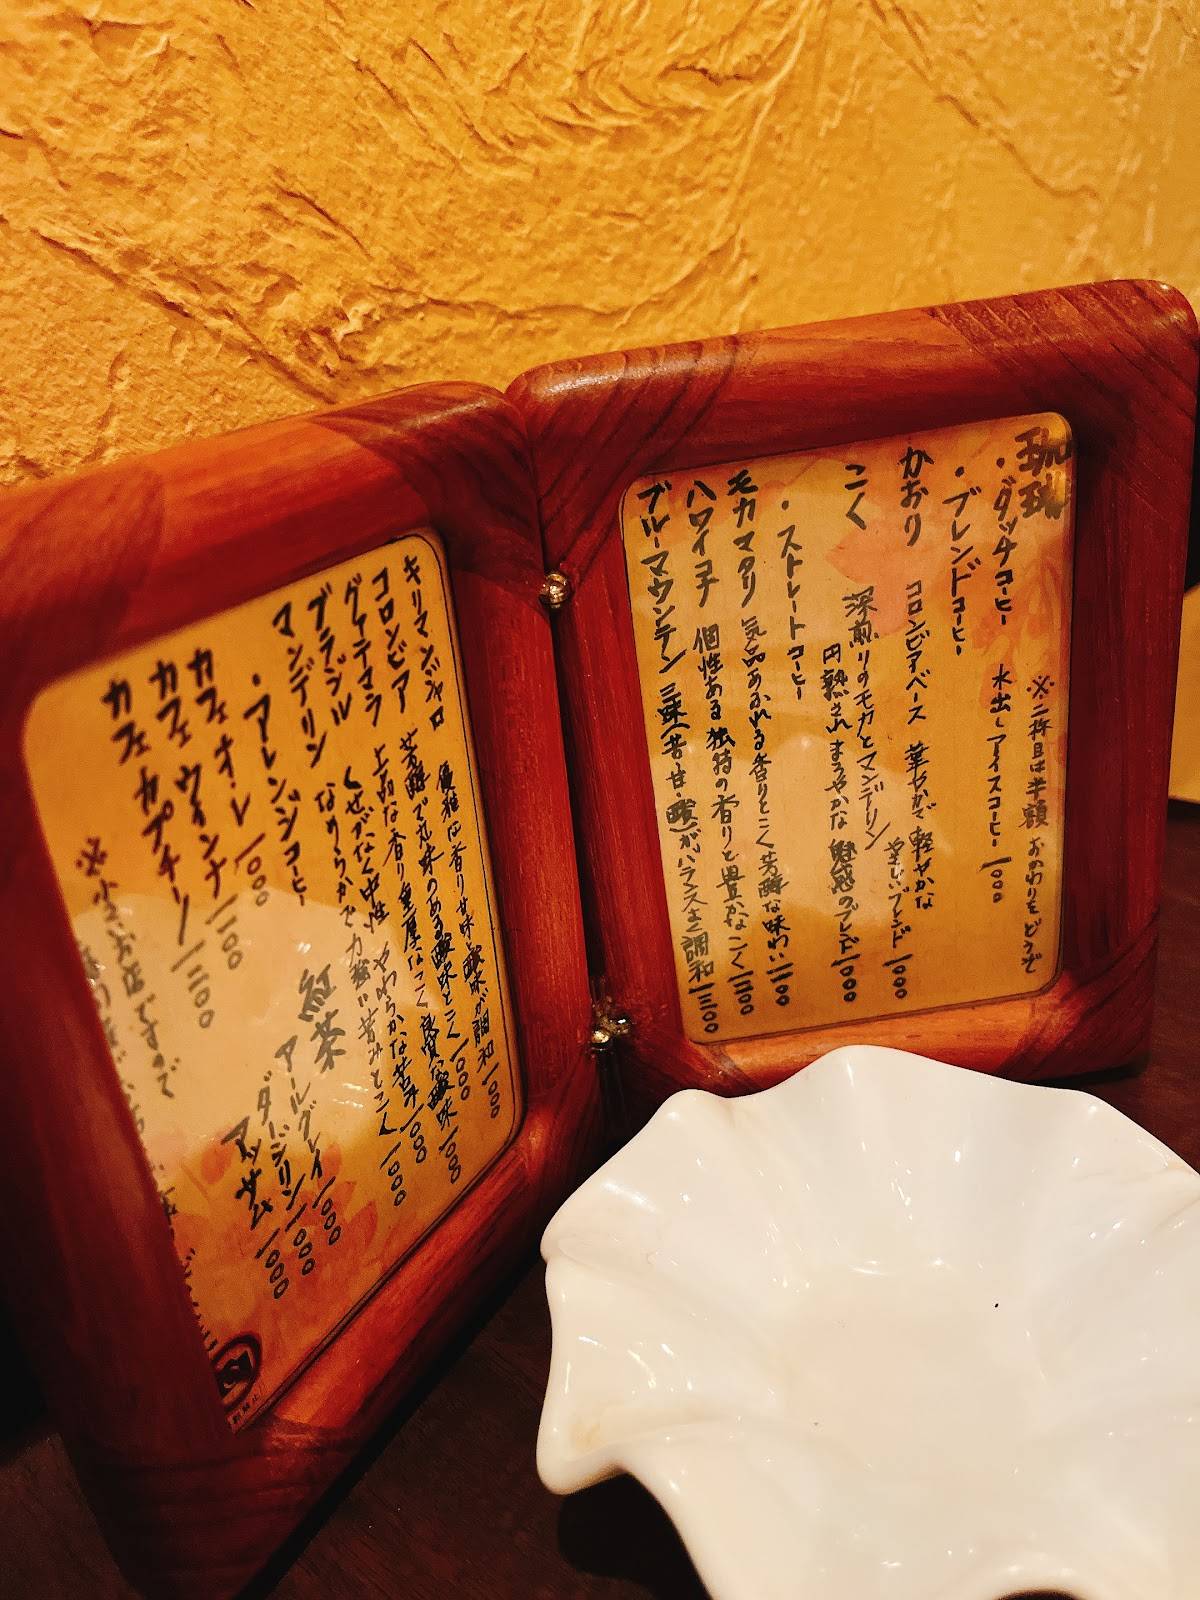 珈琲 ※二杯目は半額 おかわりをどうぞ
・ダッチコーヒー 水出しアイスコーヒー 一〇〇〇
・ブレンドコーヒー
かおり コロンビアベース 華やかで軽やかな
やさしいブレンド 一〇〇〇
こく 深煎りのモカとマンデリン
円熟されまろやかな魅惑のブレンド 一〇〇〇
・ストレートコーヒー
モカマタリ 気品あふれる香りとこく 芳醇な味わい 一一〇〇
ハワイコナ 個性ある独特の香りと豊かなこく 一三〇〇
ブルーマウンテン 三味(苦・甘・酸)がバランスよく調和 一三〇〇
キリマンジャロ 優雅な香り 甘味と酸味が調和 一〇〇〇
コロンビア 芳醇で丸味のある酸味とこく 一〇〇〇
ガテマラ 上品な香り 重厚なこく 良質な酸味 一〇〇〇
ブラジル くせがなく中性 やわらかな苦み 一〇〇〇
マンデリン なめらかで力強い苦みとこく 一〇〇〇
・アレンジコーヒー
カフェ・オ・レ 一〇〇〇
カフェ ウィンナ 一一〇〇
カフェ カプチーノ 一二〇〇
紅茶
アールグレイ 一〇〇〇
ダージリン 一〇〇〇
アッサム 一〇〇〇
※小さいお店ですので